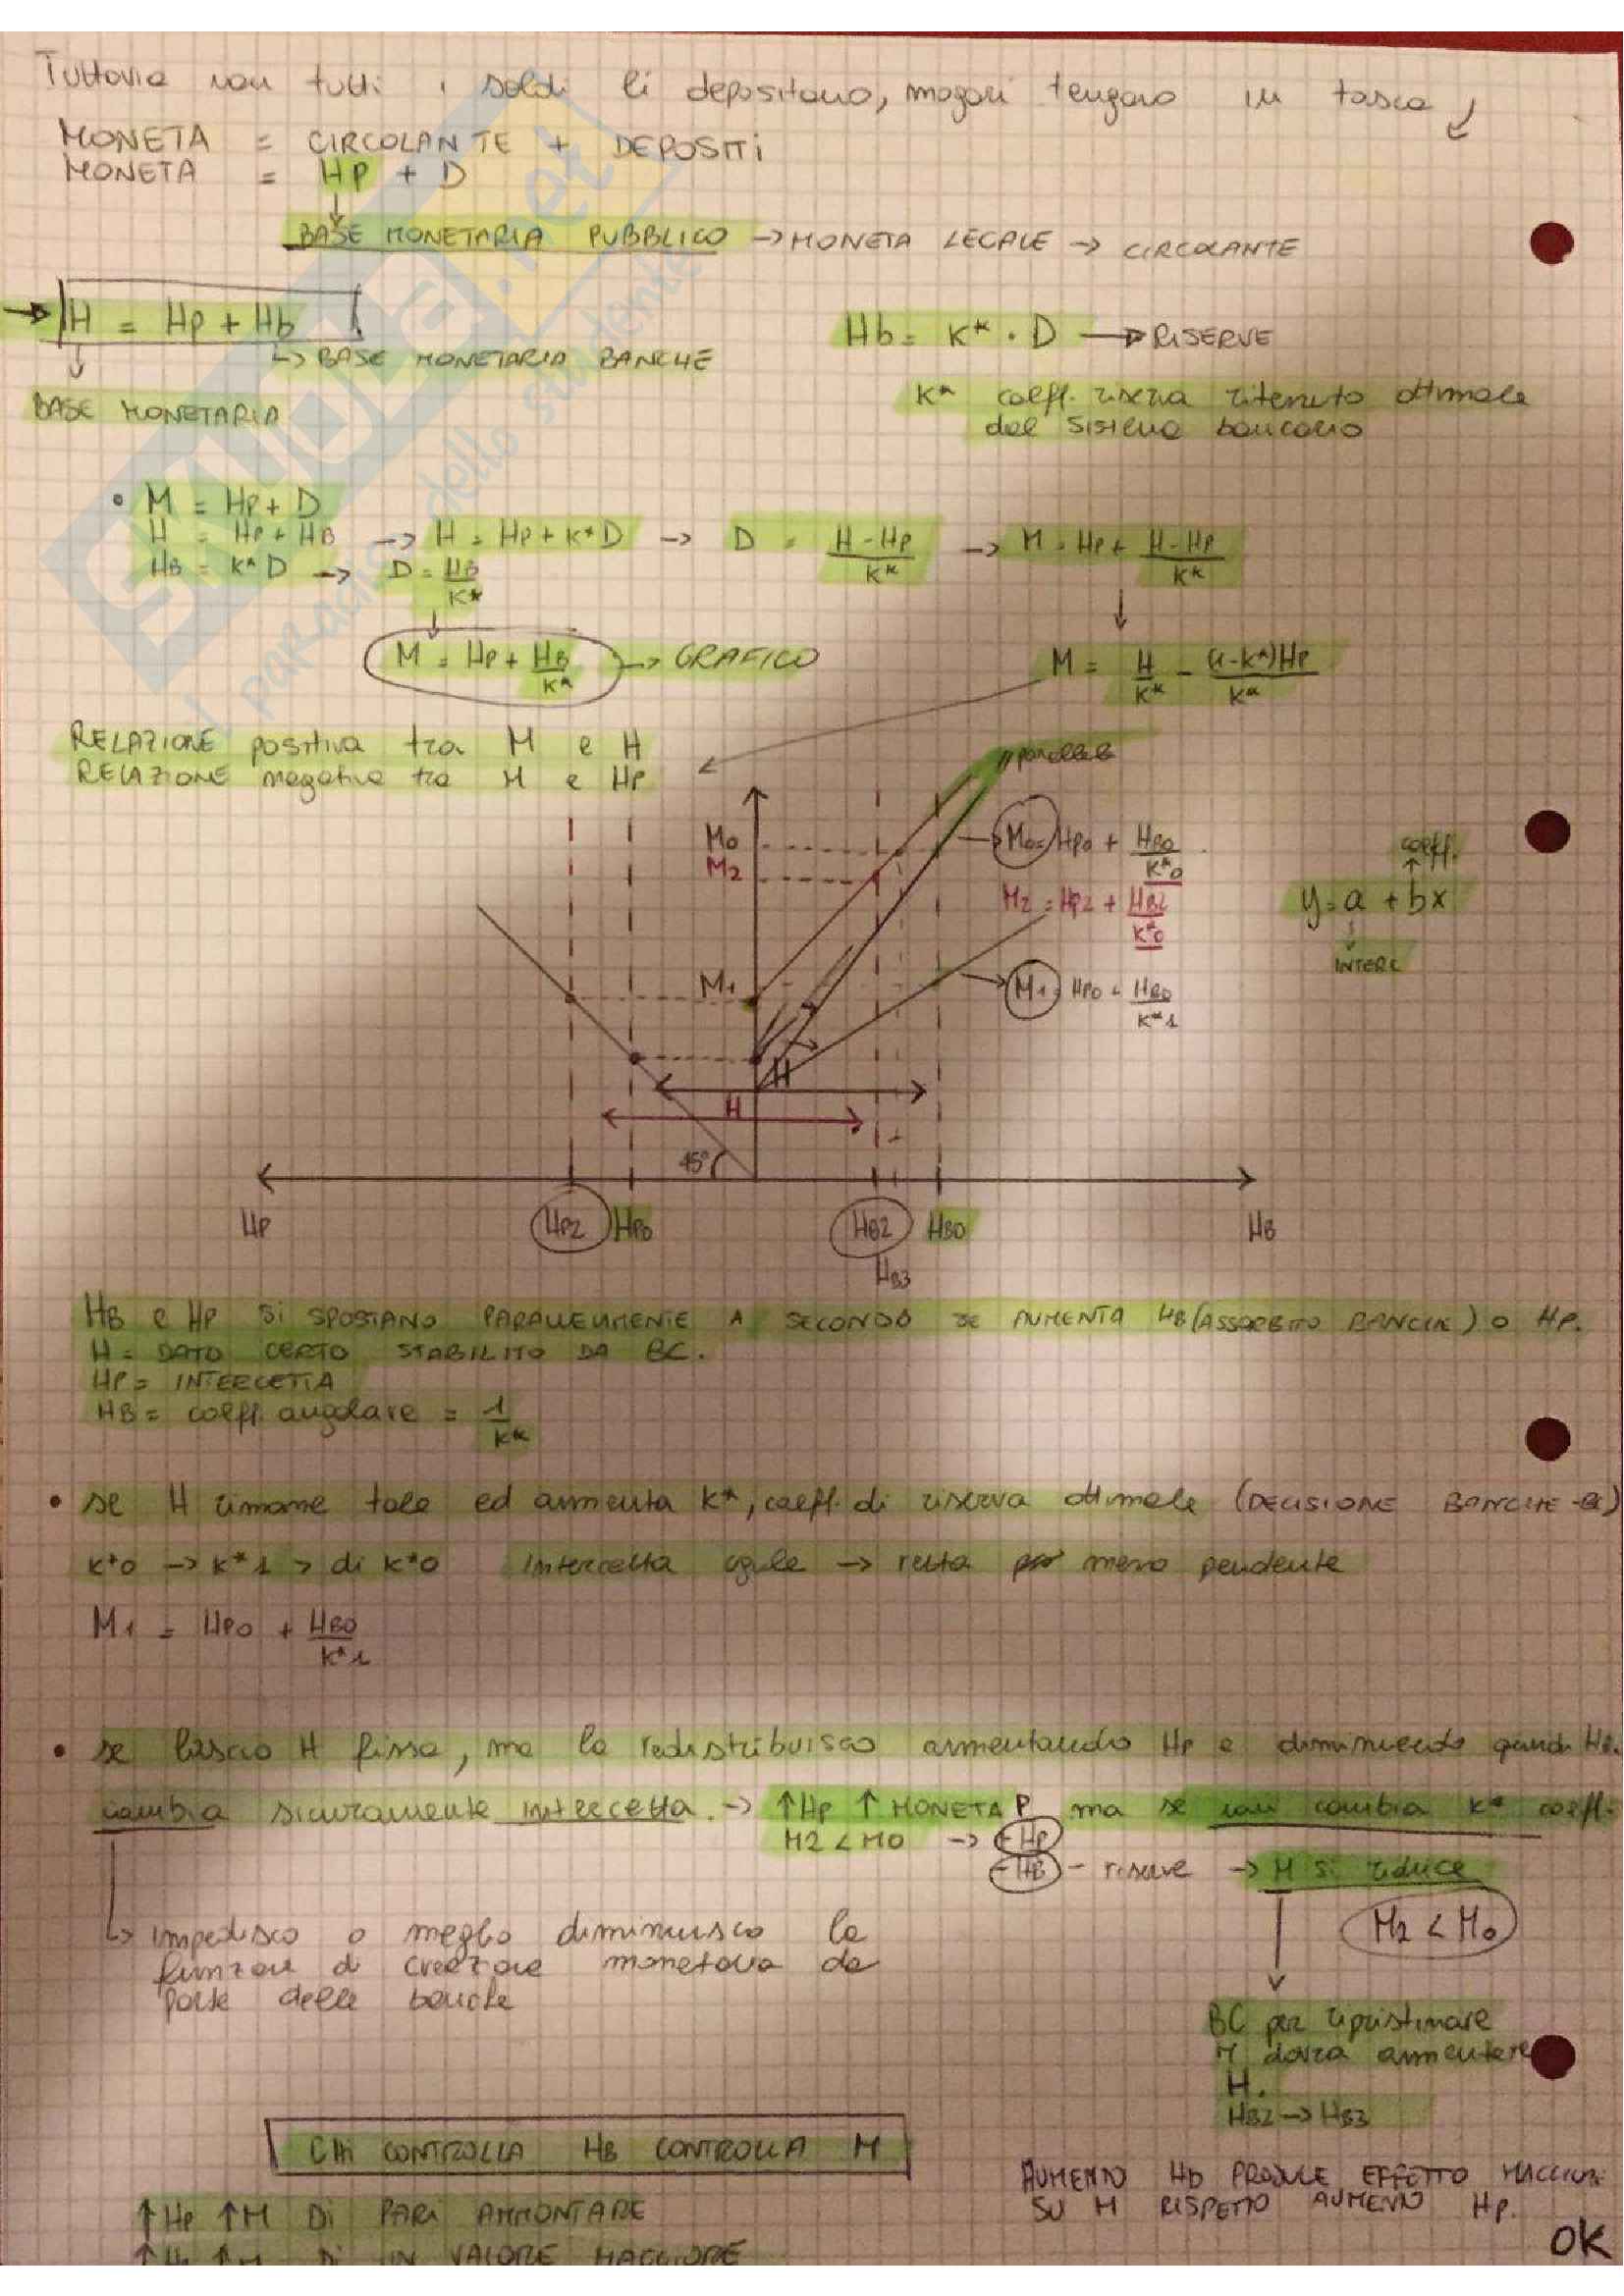 Tuttavia non tutti i soldi li depositano, magari tengono in tasca
MONETA = CIRCOLANTE + DEPOSITI
MONETA = HP + D
BASE MONETARIA PUBBLICO → MONETA LEGALE → CIRCOLANTE
→ H = Hp + Hb
Hb = K* · D → RISERVE
↳ BASE MONETARIA BANCHE
BASE MONETARIA
K* coeff. riserva ritenuto ottimale
dal sistema bancario
• M = Hp + D
H = Hp + HB → H = Hp + K*D → D = H - Hp / K* → M = Hp + H - Hp / K*
HB = K*D → D = HB / K*
M = Hp + HB / K* → GRAFICO
M = H / K* - (1-K*)Hp / K*
RELAZIONE positiva tra M e H
RELAZIONE negativa tra M e Hp
// parallele
M0
M0 = HP0 + HB0 / K*0
coeff.
M2
M2 = HP2 + HB2 / K*0
y = a + bx
INTERC
M1
M1 = HP0 + HB0 / K*1
H
H
45°
Hp
HP2
HP0
HB2
HB0
HB
HB3
HB e HP SI SPOSTANO PARALLELAMENTE A SECONDO SE AUMENTA HB (ASSORBITO BANCHE) O HP.
H = DATO CERTO STABILITO DA BC.
HP = INTERCETTA
HB = coeff. angolare = 1 / K*
• se H rimane tale ed aumenta K*, coeff. di riserva ottimale (DECISIONE BANCHE - BC)
K*0 → K*1 > di K*0 Intercetta uguale → retta meno pendente
M1 = HP0 + HB0 / K*1
• se lascio H fissa, ma la redistribuisco aumentando Hp e diminuendo quindi HB.
cambia sicuramente intercetta. → ↑Hp ↑ MONETA P ma se non cambia K* coeff.
M2 < M0 → Hp
- HB - riserve → M si riduce
M2 < M0
↳ impedisco o meglio diminuisco la
funzione di creazione monetaria da
parte delle banche
BC per ripristinare
M dovrà aumentare
H.
HB2 → HB3
CHI CONTROLLA HB CONTROLLA M
AUMENTO Hb PRODUCE EFFETTO MAGGIORE
SU M RISPETTO AUMENTO HP.
↑Hp ↑M DI PARI AMMONTARE
↑Hb ↑M DI UN VALORE MAGGIORE
OK
skuola.net
il paradiso dello studente